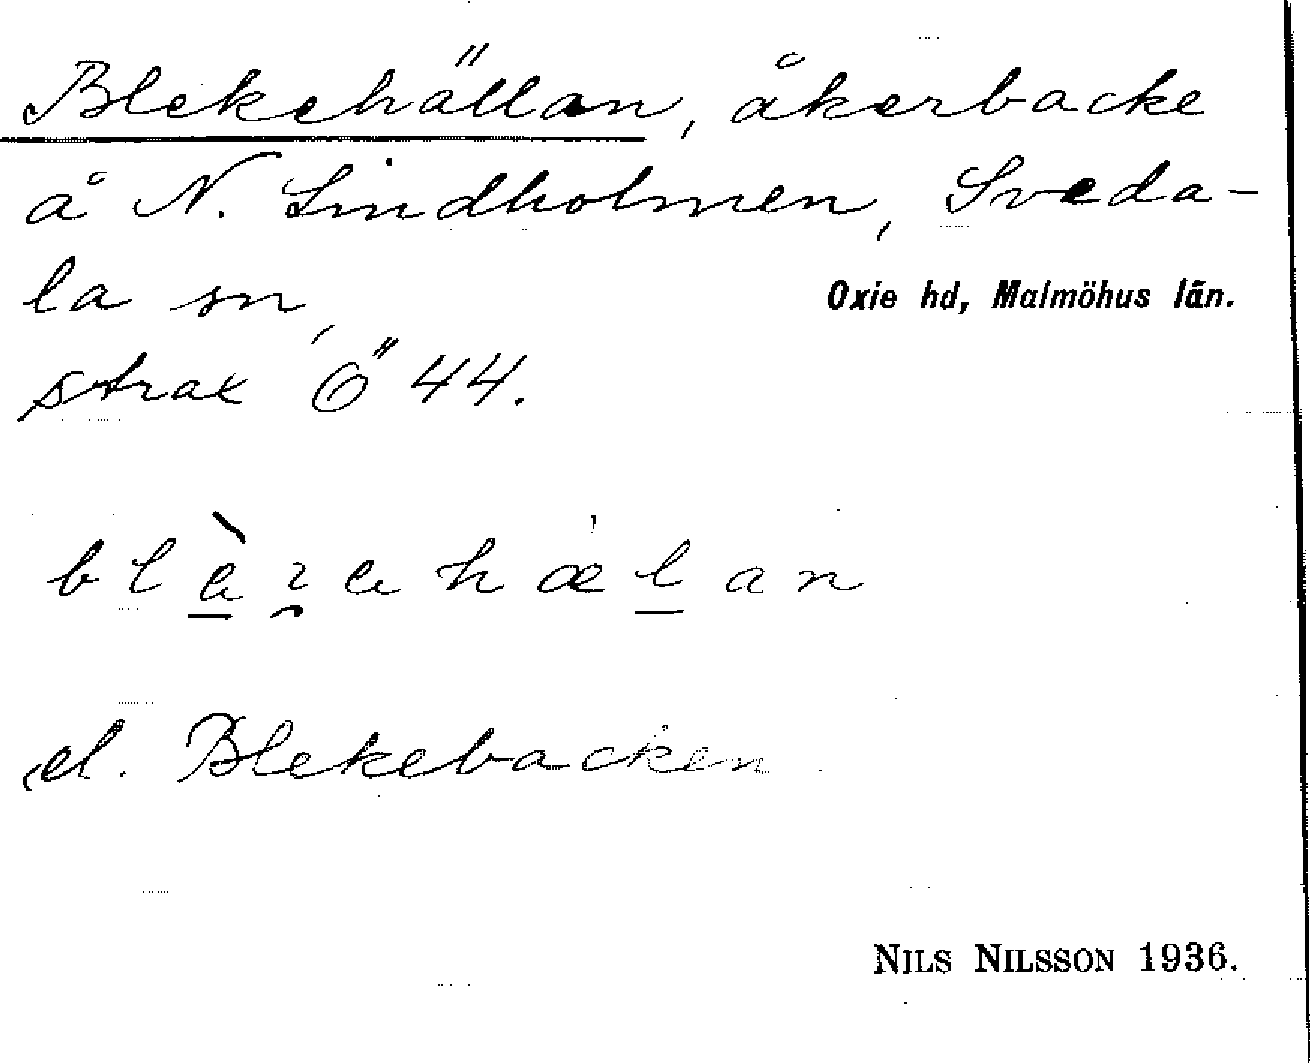 Blekehällan, åkerbacke
å N. Lindholmen, Sveda-
la sn,
Oxie hd, Malmöhus län.
strax Ö 44.
el. Blekebacken
NILS NILSSON 1936.